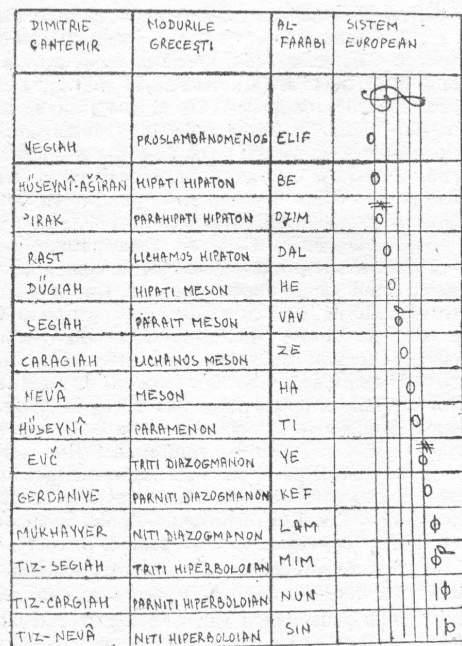 DIMITRIE CANTEMIR MODURILE GRECEȘTI AL-FARABI SISTEM EUROPEAN
YEGIAH PROSLAMBANOMENOS ELIF
HÜSEYNÎ-AŠÎRAN HIPATI HIPATON BE
'IRAK PARAHIPATI HIPATON DJIM
RAST LICHAMOS HIPATON DAL
DÜGIAH HIPATI MESON HE
SEGIAH PARAIT MESON VAV
CARAGIAH LICHANOS MESON ZE
NEVÂ MESON HA
HÜSEYNÎ PARAMENON TI
EVČ TRITI DIAZOGMANON YE
GERDANIYE PARNITI DIAZOGMANON KEF
MUKHAYYER NITI DIAZOGMANON LAM
TIZ-SEGIAH TRITI HIPERBOLOIAN MIM
TIZ-CARGIAH PARNITI HIPERBOLOIAN NUN
TIZ-NEVÂ NITI HIPERBOLOIAN SIN